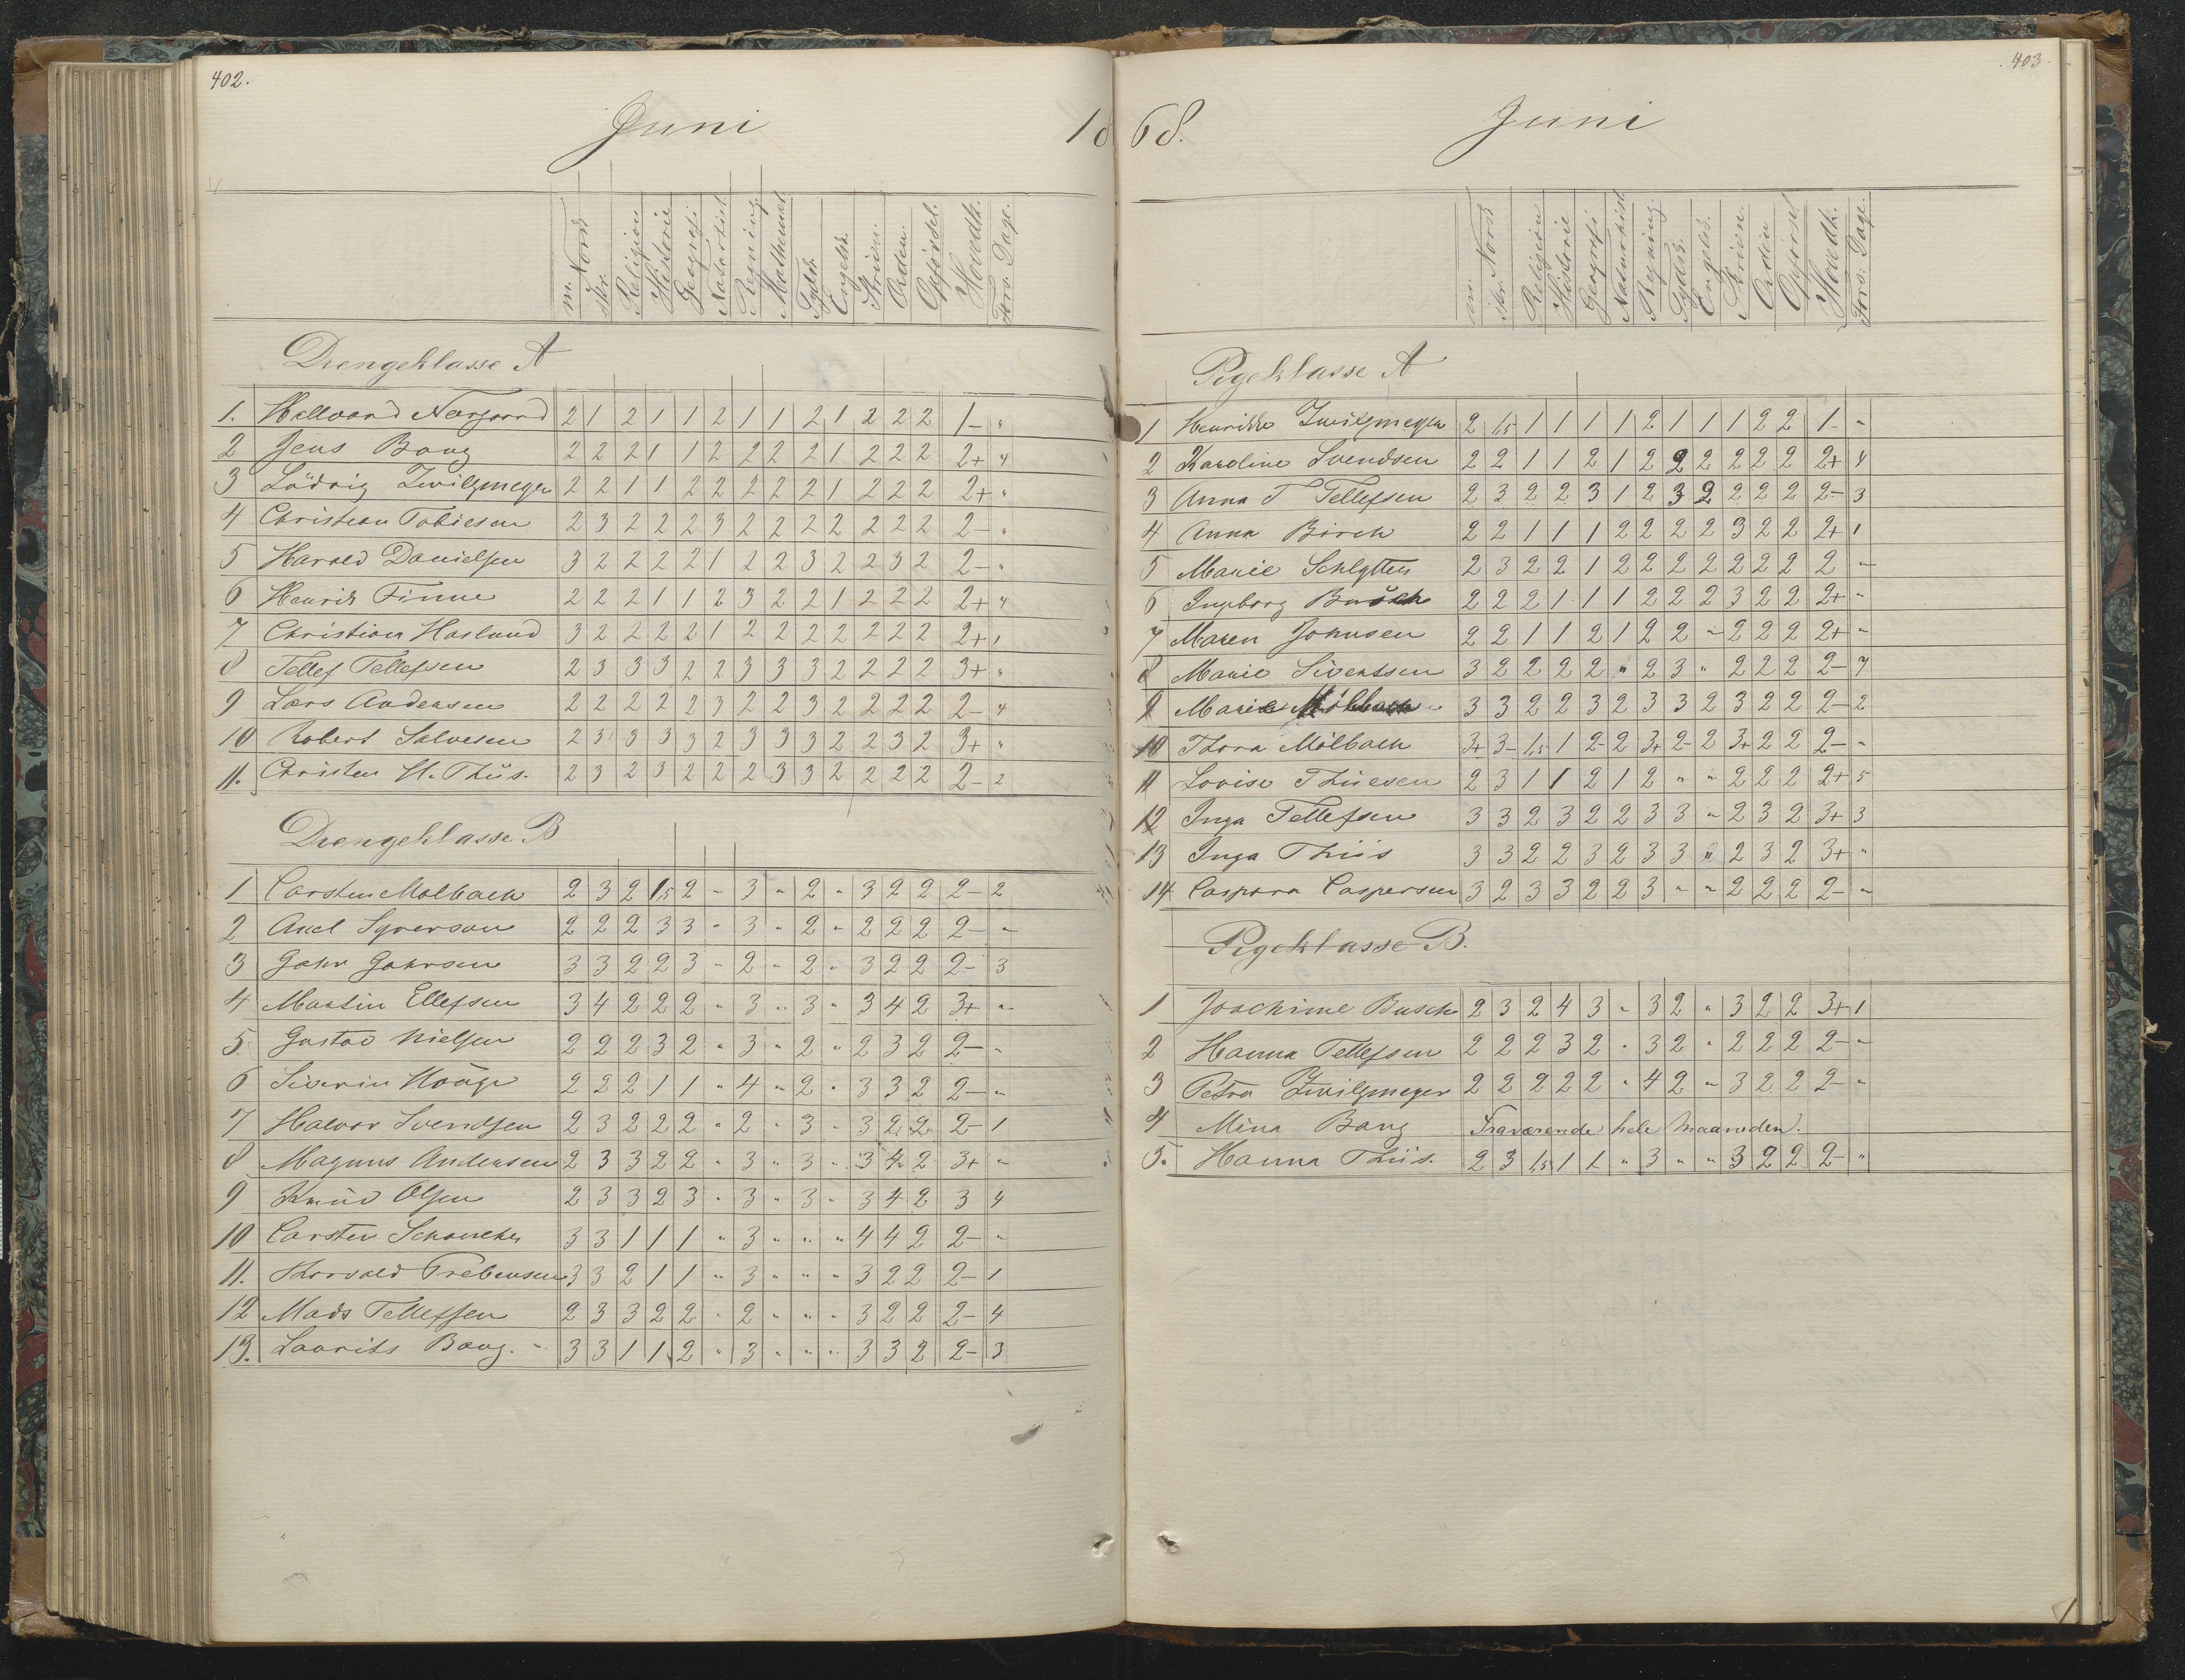 402.
Juni 18
m. Norsk skr. Religion Historie Geografi Naturhist Regning Mathemat. Tydsk Engelsk. Skrivn. Orden. Opførsel. Hovedk. Fors. Dage.
Drengeklasse A
1. Hallvard Nergaard 2 1 2 1 1 2 1 1 2 1 2 2 2 1- "
2 Jens Bang 2 2 2 1 1 2 2 2 2 1 2 2 2 2+ 4
3 Ludvig Zwilgmeyer 2 2 1 1 2 2 2 2 2 1 2 2 2 2+ "
4 Christian Tobiesen 2 3 2 2 2 3 2 2 2 2 2 2 2 2- "
5 Harald Danielsen 3 2 2 2 2 1 2 2 3 2 2 3 2 2- "
6 Henrik Finne 2 2 2 1 1 2 3 2 2 1 2 2 2 2+ 4
7 Christian Haslund 3 2 2 2 2 1 2 2 2 2 2 2 2 2+ 1
8 Tellef Tellefsen 2 3 3 3 2 2 3 3 3 2 2 2 2 3+ "
9 Lars Andersen 2 2 2 2 2 3 2 2 3 2 2 2 2 2- 4
10 Robert Salvesen 2 3 3 3 3 2 3 3 3 2 2 3 2 3+ "
11. Christen H. Thiis. 2 3 2 3 2 2 2 3 3 2 2 2 2 2- 2
Drengeklasse B
1 Carsten Mølbach 2 3 2 1,5 2 " 3 " 2 " 3 2 2 2- 2
2 Axel Syverson 2 2 2 3 3 " 3 " 2 " 2 2 2 2- "
3 Gahr Gahrsen 3 3 2 2 3 " 2 " 2 " 3 2 2 2- 3
4 Martin Ellefsen 3 4 2 2 2 " 3 " 3 " 3 4 2 3+ "
5 Gustav Nielsen 2 2 2 3 2 " 3 " 2 " 2 3 2 2- "
6 Siverin Haage 2 2 2 1 1 " 4 " 2 " 3 3 2 2- "
7 Halvor Svendsen 2 3 2 2 2 " 2 " 3 " 3 2 2 2- 1
8 Magnus Andersen 2 3 3 2 2 " 3 " 3 " 3 4 2 3+ "
9 Knud Olsen 2 3 3 2 3 " 3 " 3 " 3 4 2 3 4
10 Carsten 3 3 1 1 1 " 3 " " " 4 4 2 2- "
11. Thorvald Prebensen 3 3 2 1 1 " 3 " " " 3 2 2 2- 1
12 Mads Tellefsen 2 3 3 2 2 " 2 " " " 3 2 2 2- 4
13. Laurits Bang. 3 3 1 1 2 " 3 " " " 3 3 2 2- 3
403.
68. Juni
m. Norsk skr. Religion Historie Geografi Naturhist. Regning. Tydsk. Engelsk. Skrivn. Orden Opførsel Hovedk. Fors. Dage.
Pigeklasse A
1 Henrikke Zwilgmeyer 2 1,5 1 1 1 1 2 1 1 1 2 2 1- "
2 Karoline Svendsen 2 2 1 1 2 1 2 2 2 2 2 2 2+ 4
3 Anna T Tellefsen 2 3 2 2 3 1 2 3 2 2 2 2 2- 3
4 Anna Birch 2 2 1 1 1 2 2 2 2 3 2 2 2+ 1
5 Marie Schlytter 2 3 2 2 1 2 2 2 2 2 2 2 2 "
6 Ingeborg Busch 2 2 2 1 1 1 2 2 2 3 2 2 2+ "
7 Maren Johnsen 2 2 1 1 2 1 2 2 " 2 2 2 2+ "
8 Marie Sivertsen 3 2 2 2 2 " 2 3 " 2 2 2 2- 7
9 Marie Mølbach 3 3 2 2 3 2 3 3 2 3 2 2 2- 2
10 Thora Mölbach 3+ 3- 1,5 1 2- 2 3+ 2- 2 3+ 2 2 2- "
11 Lovise Thuesen 2 3 1 1 2 1 2 " " 2 2 2 2+ 5
12 Inga Tellefsen 3 3 2 3 2 2 3 3 " 2 3 2 3+ 3
13 Inga Thiis 3 3 2 2 3 2 3 3 " 2 3 2 3+ "
14 Caspara Caspersen 3 2 3 3 2 2 3 " " 2 2 2 2- "
Pigeklasse B.
1 Joachime Busch 2 3 2 4 3 " 3 2 " 3 2 2 3+ 1
2 Hanna Tellefsen 2 2 2 3 2 " 3 2 " 2 2 2 2- "
3 Petra Zwilgmeyer 2 2 2 2 2 " 4 2 " 3 2 2 2- "
4 Mina Bang Fraværende hele Maaneden.
5. Hanna Thiis. 2 3 1,5 1 1 " 3 " " 3 2 2 2- "